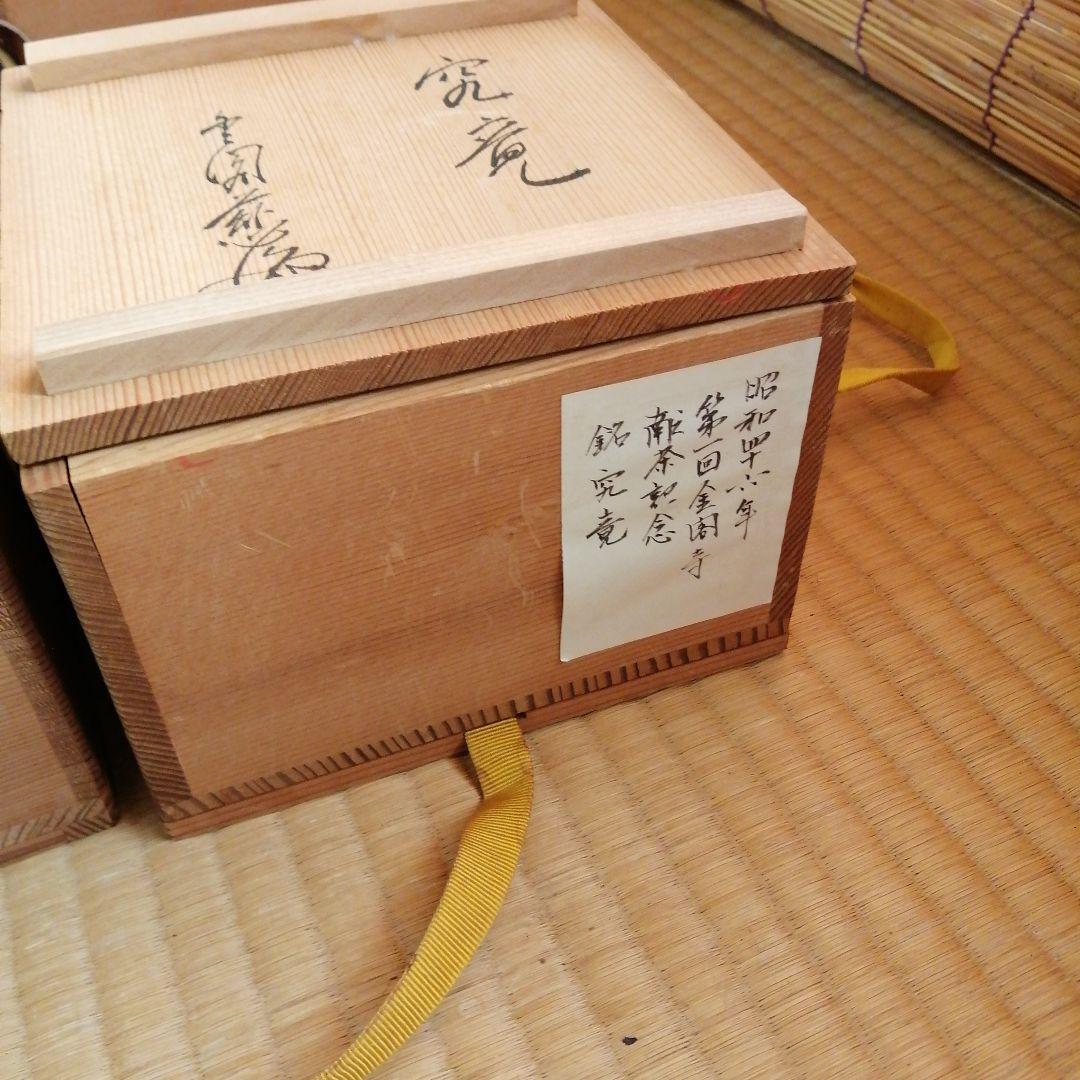 究竟
昭和四十六年
第一回金閣寺
献茶記念
銘 究竟